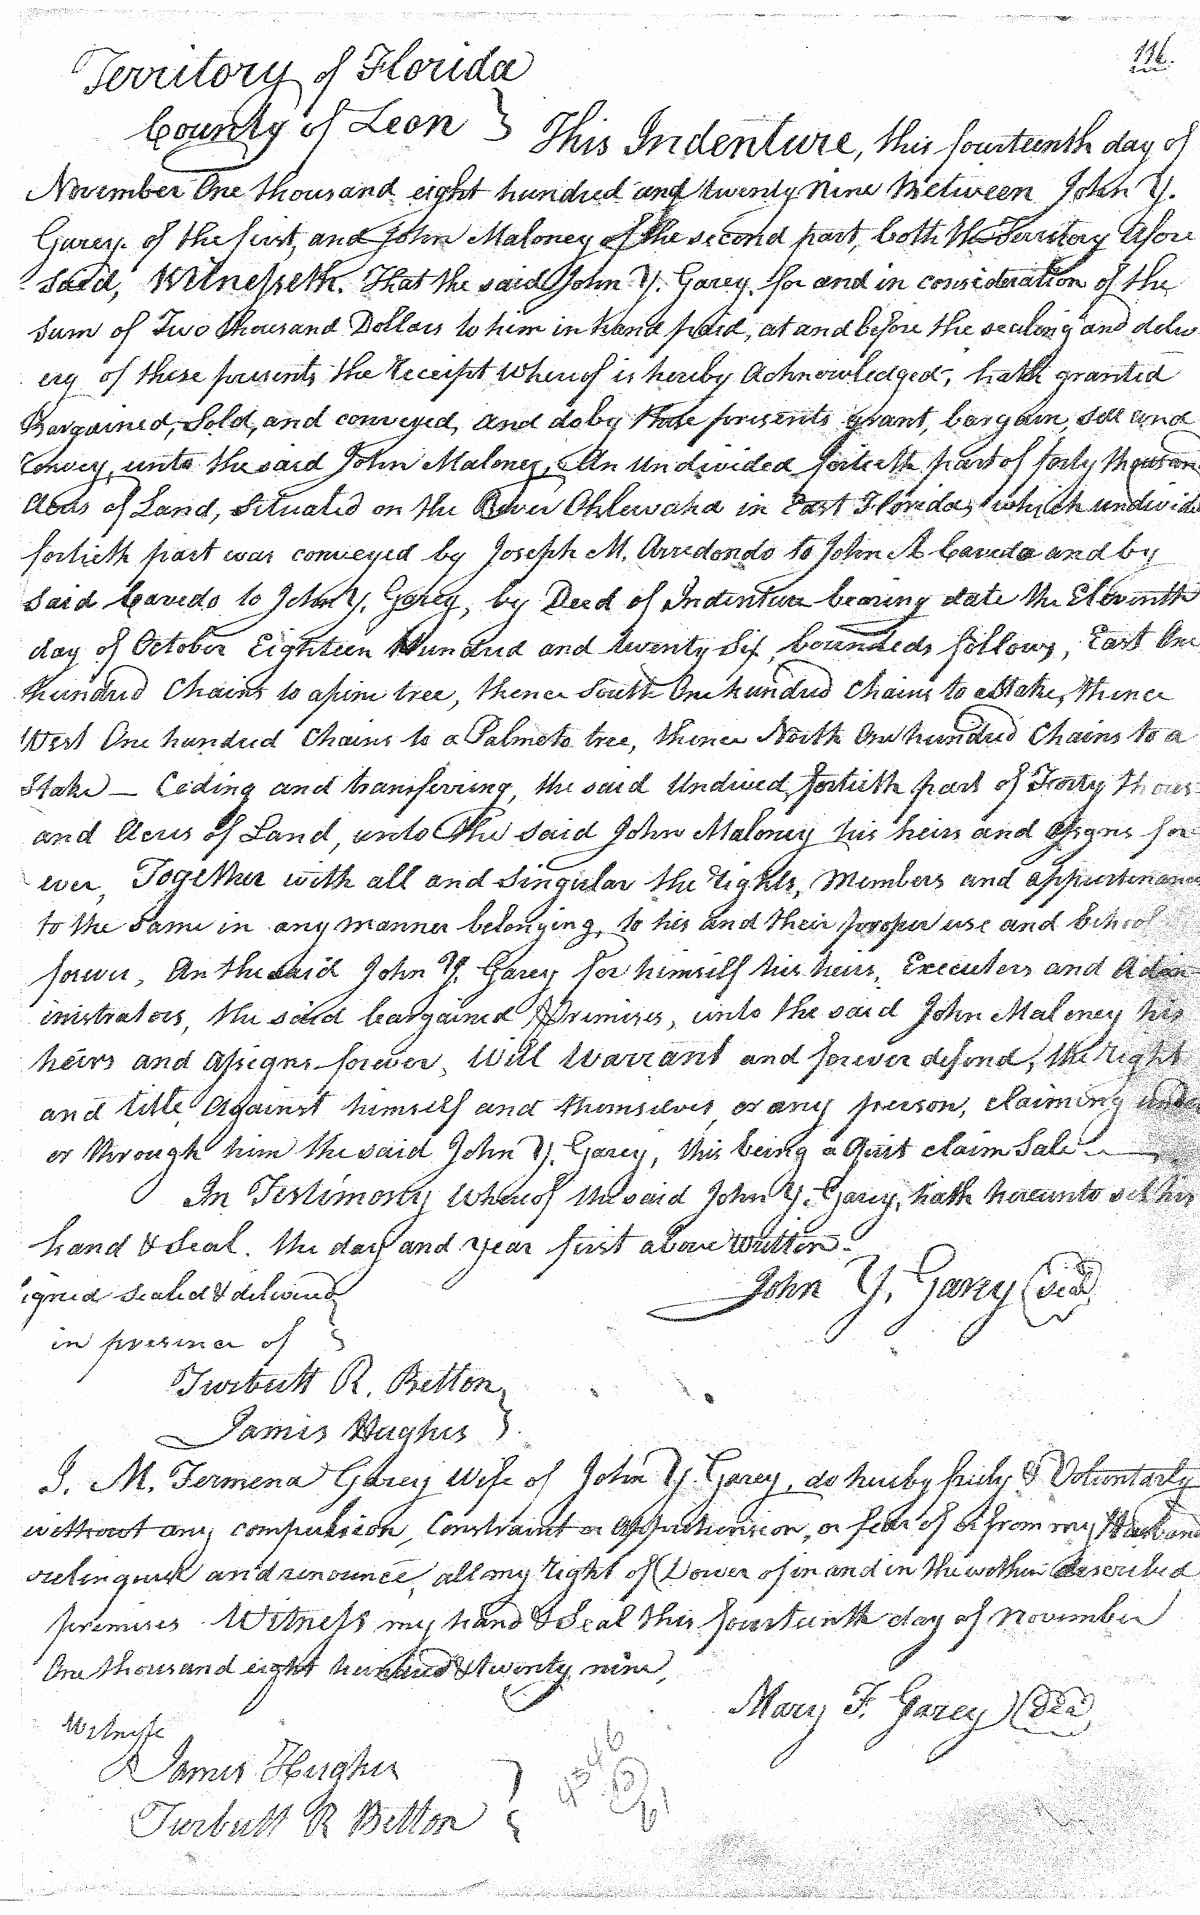 116.
Territory of Florida
County of Leon } This Indenture, this fourteenth day of
November One thousand eight hundred and twenty nine Between John Y.
Garey of the first, and John Maloney of the second part, both the Territory afore
said, Witnesseth. That the said John Y. Garey for and in consideration of the
sum of Two thousand Dollars to him in hand paid, at and before the sealing and deliv
ery of these presents the receipt whereof is hereby acknowledged, hath granted
Bargained, Sold, and conveyed, and do by these presents grant, bargain, sell and
convey, unto the said John Maloney, An undivided fortieth part of forty thousand
Acres of Land, situated on the River Ohlewaha in East Florida, which undivide
fortieth part was conveyed by Joseph M. Arredondo to John A Cavedo and by
said Cavedo to John Y. Garey, by Deed of Indenture bearing date the Eleventh
day of October Eighteen Hundred and twenty Six, bounded as follows, East One
hundred Chains to a pine tree, thence South One hundred Chains to a Stake, thence
West One hundred Chains to a Palmeto tree, thence North One hundred Chains to a
Stake — Ceding and transferring, the said Undived, fortieth part of Forty thous
and Acres of Land, unto the said John Maloney his heirs and assigns for
ever, Together with all and singular the rights, Members and appurtenances
to the same in any manner belonging, to his and their proper use and behoof
forever, An the said John Y. Garey for himself his heirs, Executers and Adm
inistrators, the said bargained Premises, unto the said John Maloney his
heirs and assigns forever, Will Warrant and forever defend, the right
and title, Against himself and themselves, or any person, claiming under
or through him the said John Y. Garey, this being a Quit claim Sale
In Testimony whereof the said John Y. Garey, hath hereunto set his
hand & Seal. the day and year first above written.
igned sealed & delivered } John Y. Garey (Seal)
in presence of }
Turbutt R. Betton }
James Hughes }
I. M. Fermena Garey wife of John Y. Garey, do hereby freely & Voluntarly
without any compulsion, Constraint or Apprehension, or fear of or from my Husband
relinquish and renounce, all my right of Dower of in and in the within described
premises Witness my hand & Seal this fourteenth day of November
One thousand eight hundred & twenty nine,
Mary F. Garey (Seal)
Witness
James Hughes }
Turbutt R Betton }